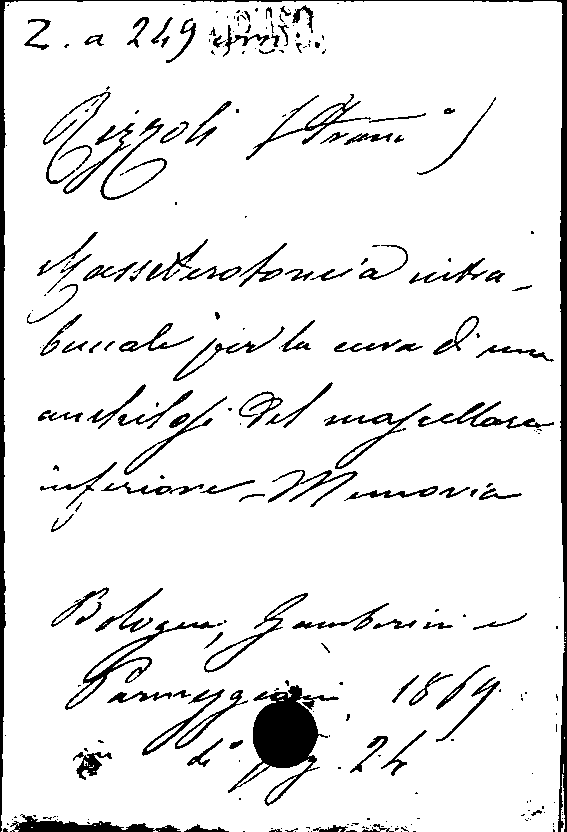 Z. a 249
Rizzoli (Franc.o)
Masseterotomia intra-
buccale per la cura di una
anchilosi del mascellare
inferiore - Memoria
Bologna, Gamberini e
Parmeggiani 1869
di pag. 24